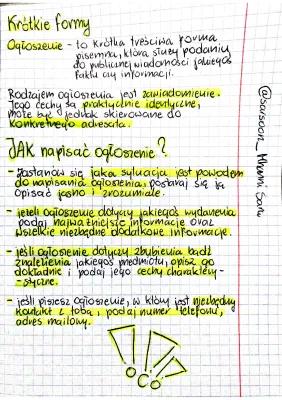 Krótkie formy
Ogłoszenie - to krótka treściwa forma
pisemna, która służy podaniu
do publicznej wiadomości jakiegoś
faktu czy informacji.
Rodzajem ogłoszenia jest zawiadomienie.
Jego cechy są praktycznie identyczne,
może być jednak skierowane do
konkretnego adresata.
JAK napisać ogłoszenie?
- zastanów się jaka sytuacja jest powodem
do napisania ogłoszenia, postaraj się ją
opisać jasno i zrozumiale.
- jeżeli ogłoszenie dotyczy jakiegoś wydarzenia
podaj najważniejsze informacje oraz
wszelkie niezbędne dodatkowe informacje.
- jeśli ogłoszenie dotyczy zbubienia bądź
znalezienia jakiegoś przedmiotu, opisz go
dokładnie i podaj jego cechy charaktery-
-styczne.
- jeśli piszesz ogłoszenie, w który jest niezbędny
kontakt z tobą, podaj numer telefonu,
adres mailowy.
@sarsoon_